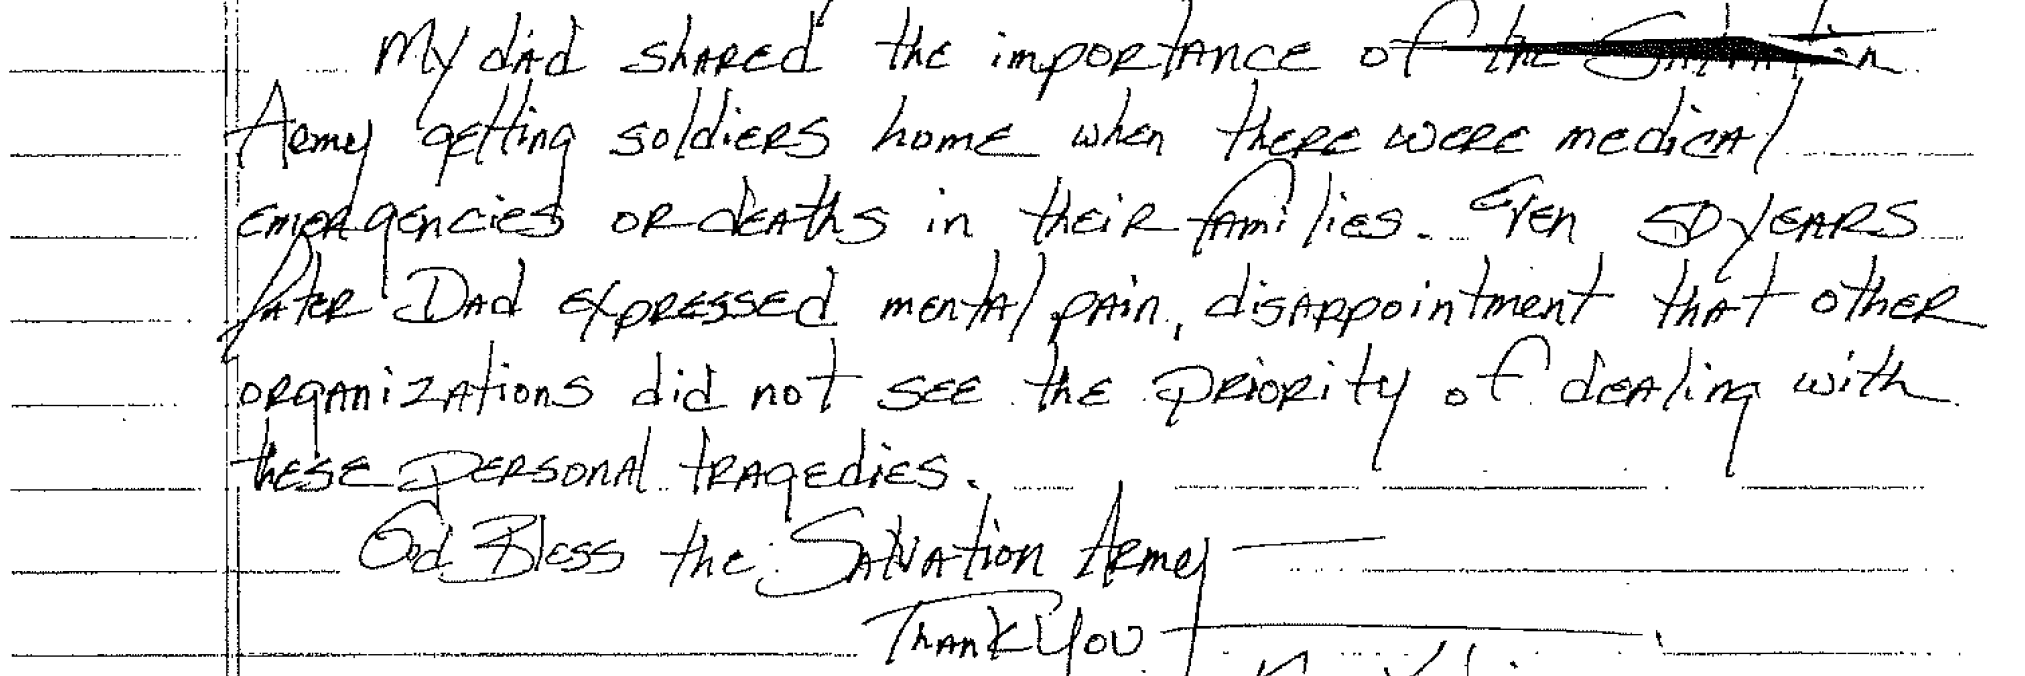 My dad shared the importance of the Salvation
Army getting soldiers home when there were medical
emergencies or deaths in their families. Even 50 years
later Dad expressed mental pain, disappointment that other
organizations did not see the priority of dealing with
these personal tragedies.
God Bless the Salvation Army
Thank You